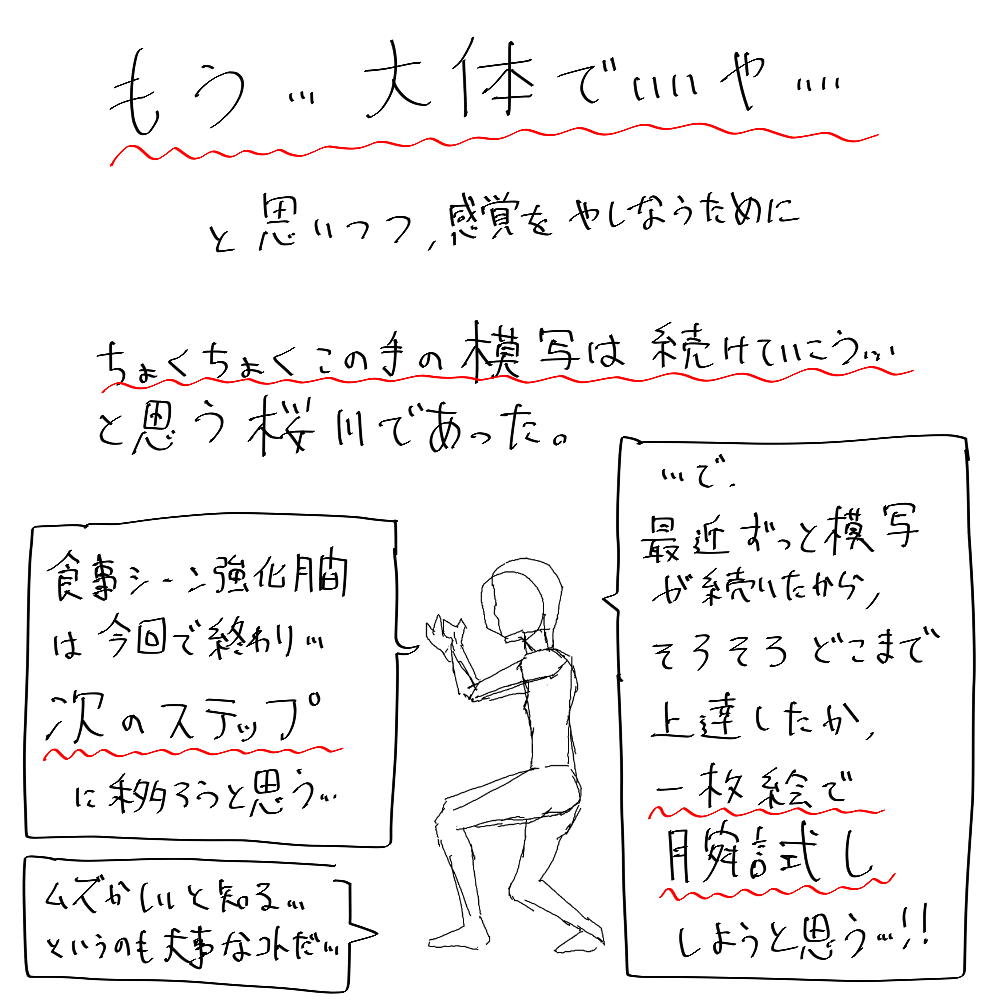 もう…大体でいいや….
と思いつつ,感覚をやしなうために
ちょくちょくこの手の模写は続けていこう….
と思う桜川であった。
…で.
最近ずっと模写
が続いたから,
そろそろどこまで
上達したか,
一枚絵で
腕試し
しようと思う…!!
食事シーン強化月間
は今回で終わり…
次のステップ
に移ろうと思う…
ムズかしいと知る…
というのも大事なコトだ…